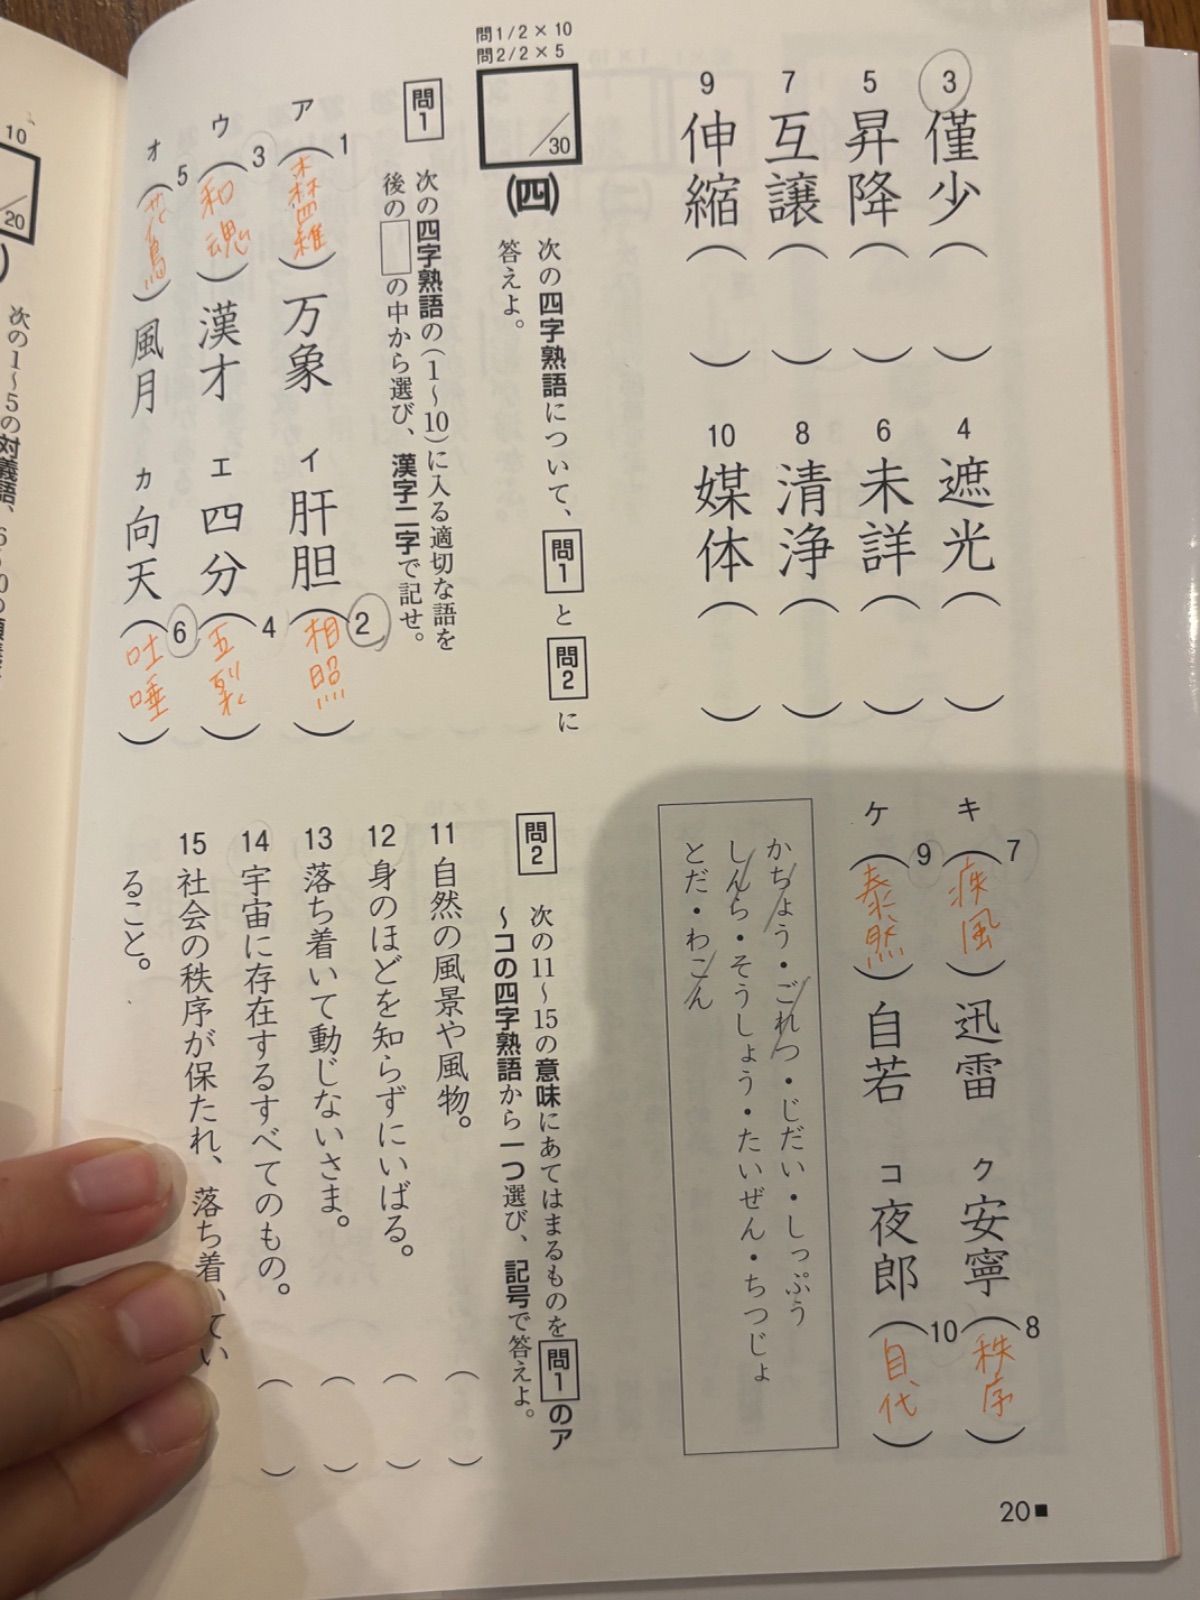 3 僅少（　　）
4 遮光（　　）
5 昇降（　　）
6 未詳（　　）
7 互譲（　　）
8 清浄（　　）
9 伸縮（　　）
10 媒体（　　）
問1/2×10
問2/2×5
/30
(四) 次の四字熟語について、問1と問2に
答えよ。
問1 次の四字熟語の（1〜10）に入る適切な語を
後の□の中から選び、漢字二字で記せ。
ア（1 森羅）万象
イ 肝胆（2 相照）
ウ（3 和魂）漢才
エ 四分（4 五裂）
オ（5 花鳥）風月
カ 向天（6 吐唾）
キ（7 疾風）迅雷
ク 安寧（8 秩序）
ケ（9 泰然）自若
コ 夜郎（10 自代）
かちょう・ごれつ・じだい・しっぷう
しんら・そうしょう・たいぜん・ちつじょ
とだ・わこん
問2 次の11〜15の意味にあてはまるものを問1のア
〜コの四字熟語から一つ選び、記号で答えよ。
11 自然の風景や風物。（　　）
12 身のほどを知らずにいばる。（　　）
13 落ち着いて動じないさま。（　　）
14 宇宙に存在するすべてのもの。（　　）
15 社会の秩序が保たれ、落ち着いてい
ること。
20■
10
/20
)
次の1〜5の対義語、6〜10の類義語